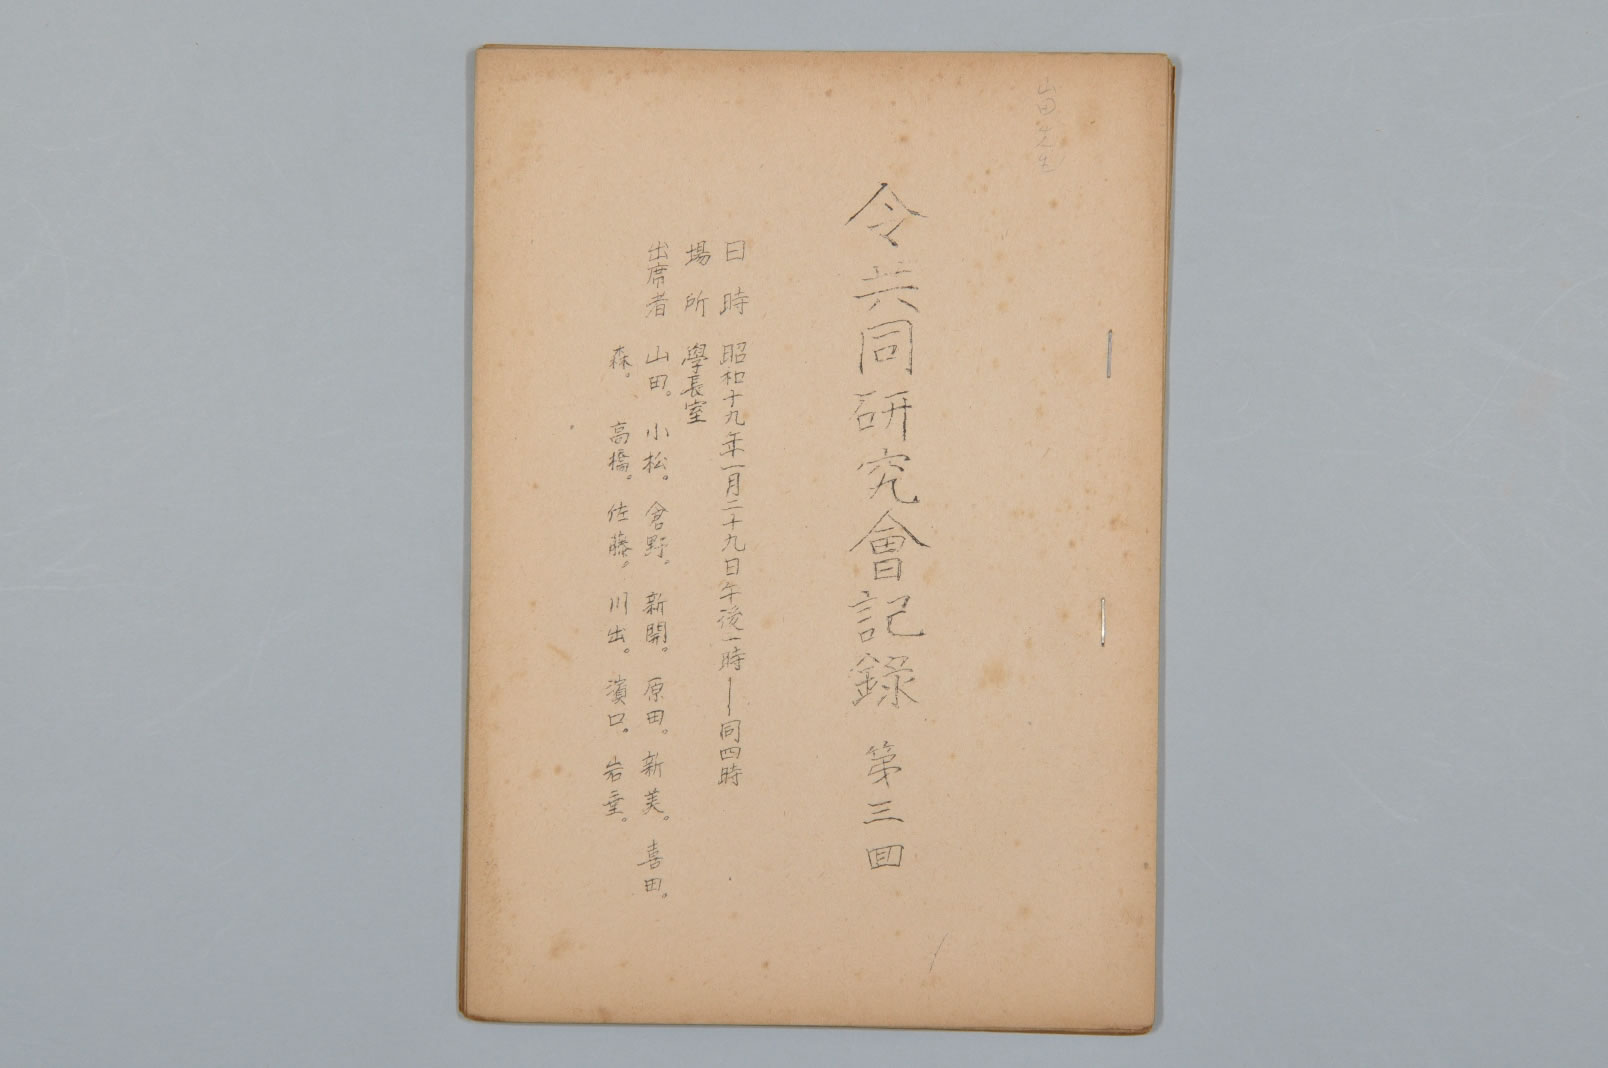 山田先生
令共同研究會記錄 第三回
日時 昭和十九年一月二十九日午後一時——同四時
場所 學長室
出席者 山田。小松。倉野。新開。原田。新美。喜田。
森。高橋。佐藤。川出。濱口。岩垂。